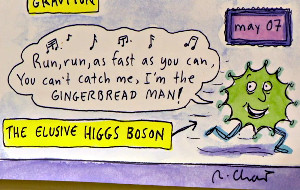 GRAVITON
may 07
Run, run, as fast as you can,
You can't catch me, I'm the
GINGERBREAD MAN!
THE ELUSIVE HIGGS BOSON
r. Chast